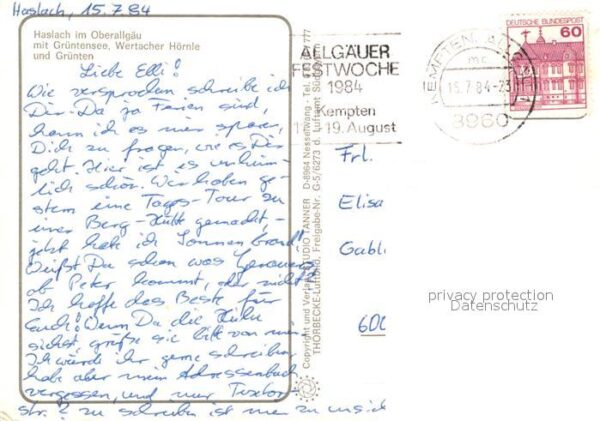 Haslach, 15.7.84
Haslach im Oberallgäu
mit Grüntensee, Wertacher Hörnle
und Grünten
Liebe Elli!
Wie versprochen schreibe ich
Dir. Da ja Ferien sind,
kann ich es mir sparen,
Dich zu fragen, wie es Dir
geht. Hier ist es unheim-
lich schön. Wir haben ge-
stern eine Tages-Tour zu
einer Berg-Hütte gemacht,
jetzt hab ich Sonnenbrand!
Weißt Du schon was Genaueres
ob Peter kommt, oder nicht?
Ich hoffe das Beste für
euch! Wenn Du die
siehst, grüße sie bitte von mir
Ich würde ihr gerne schreiben
hab aber mein Adressenbuch
vergessen, und nur
str. ? zu schreiben ist mir zu unsich
Copyright und Verlag STUDIO TANNER D-8964 Nesselwang - Tel.
THORBECKE-Luftbild, Freigabe-Nr. G-5/6273 d. Luftamt Süd
777
ALLGÄUER
FESTWOCHE
1984
Kempten
-19. August
KEMPTEN, ALLG
mc
15.7.84-23
8960
DEUTSCHE BUNDESPOST
60
Frl.
Elisa
Gabl
600
privacy protection
Datenschutz